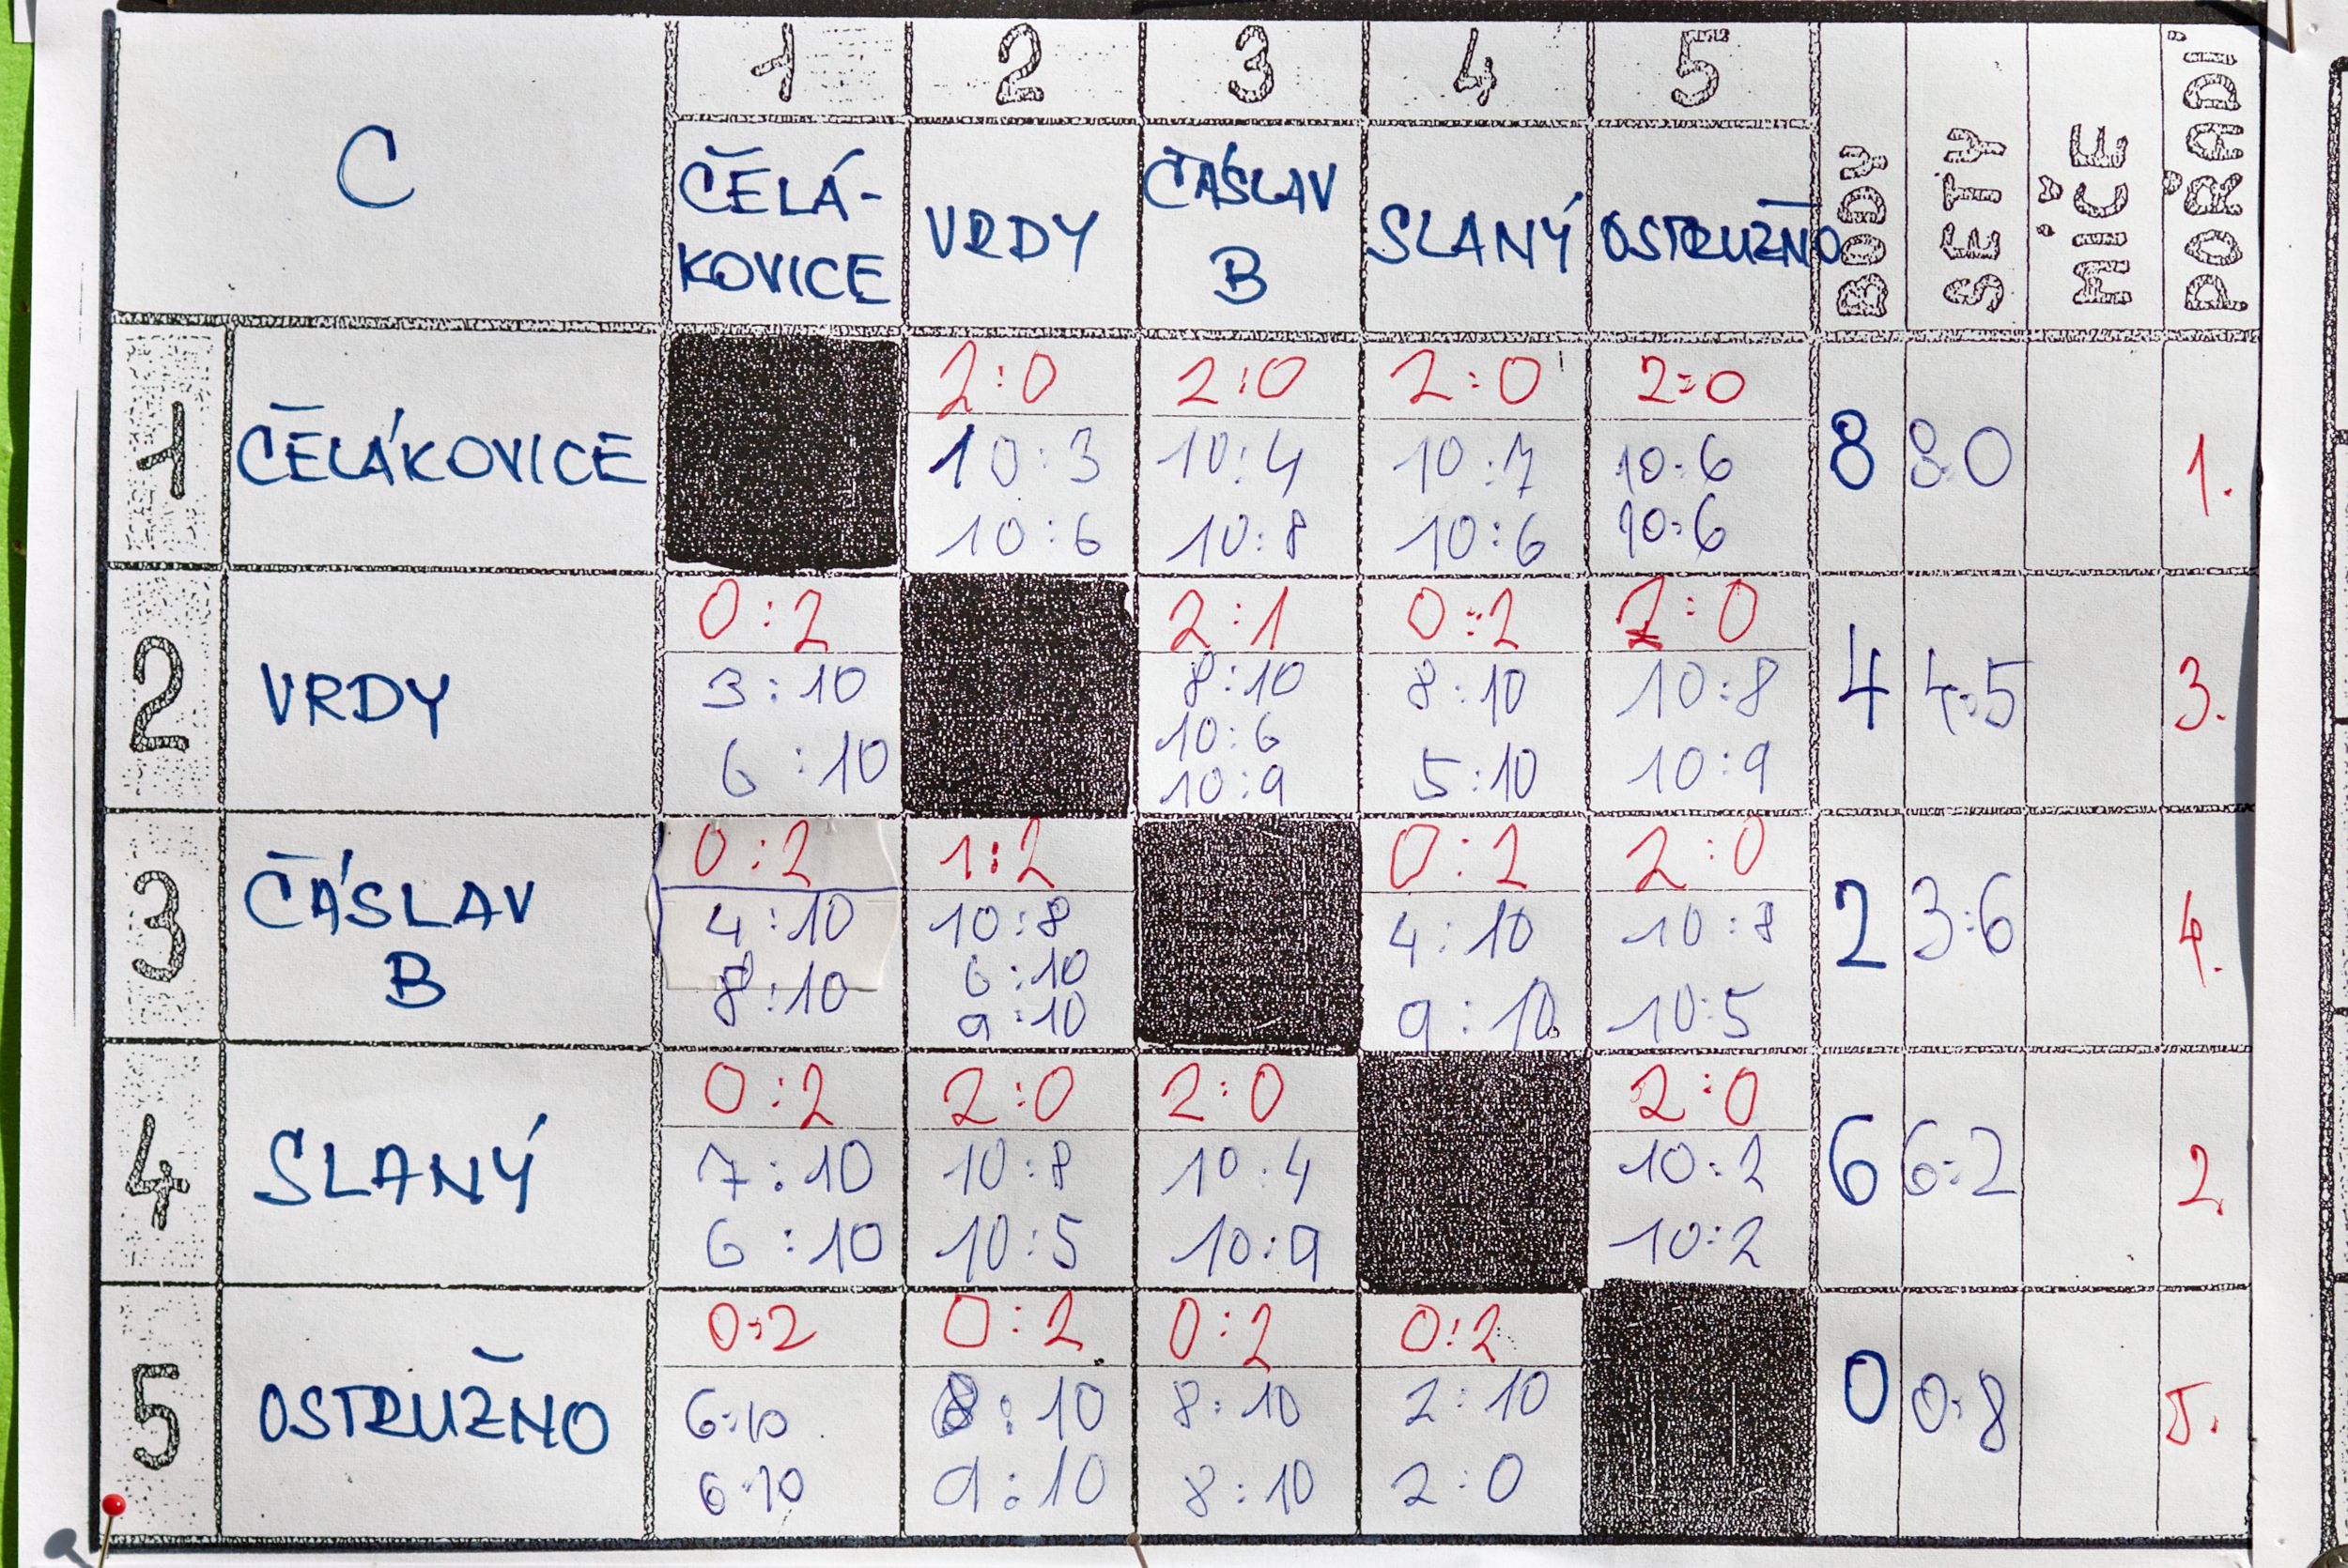 1 2 3 4 5
C ČELÁ-
KOVICE VRDY ČÁSLAV
B SLANÝ OSTRUŽNO BODY SETY MÍČE POŘADÍ
1 ČELÁKOVICE 2:0 2:0 2:0 2:0 8 8:0 1.
10:3 10:4 10:7 10:6
10:6 10:8 10:6 10:6
2 VRDY 0:2 2:1 0:2 2:0 4 4:5 3.
3:10 8:10 8:10 10:8
6:10 10:6 5:10 10:9
10:9
3 ČÁSLAV
B 0:2 1:2 0:2 2:0 2 3:6 4.
4:10 10:8 4:10 10:8
8:10 6:10 9:10 10:5
9:10
4 SLANÝ 0:2 2:0 2:0 2:0 6 6:2 2.
7:10 10:8 10:4 10:2
6:10 10:5 10:9 10:2
5 OSTRUŽNO 0:2 0:2 0:2 0:2 0 0:8 5.
6:10 8:10 8:10 2:10
6:10 9:10 8:10 2:0